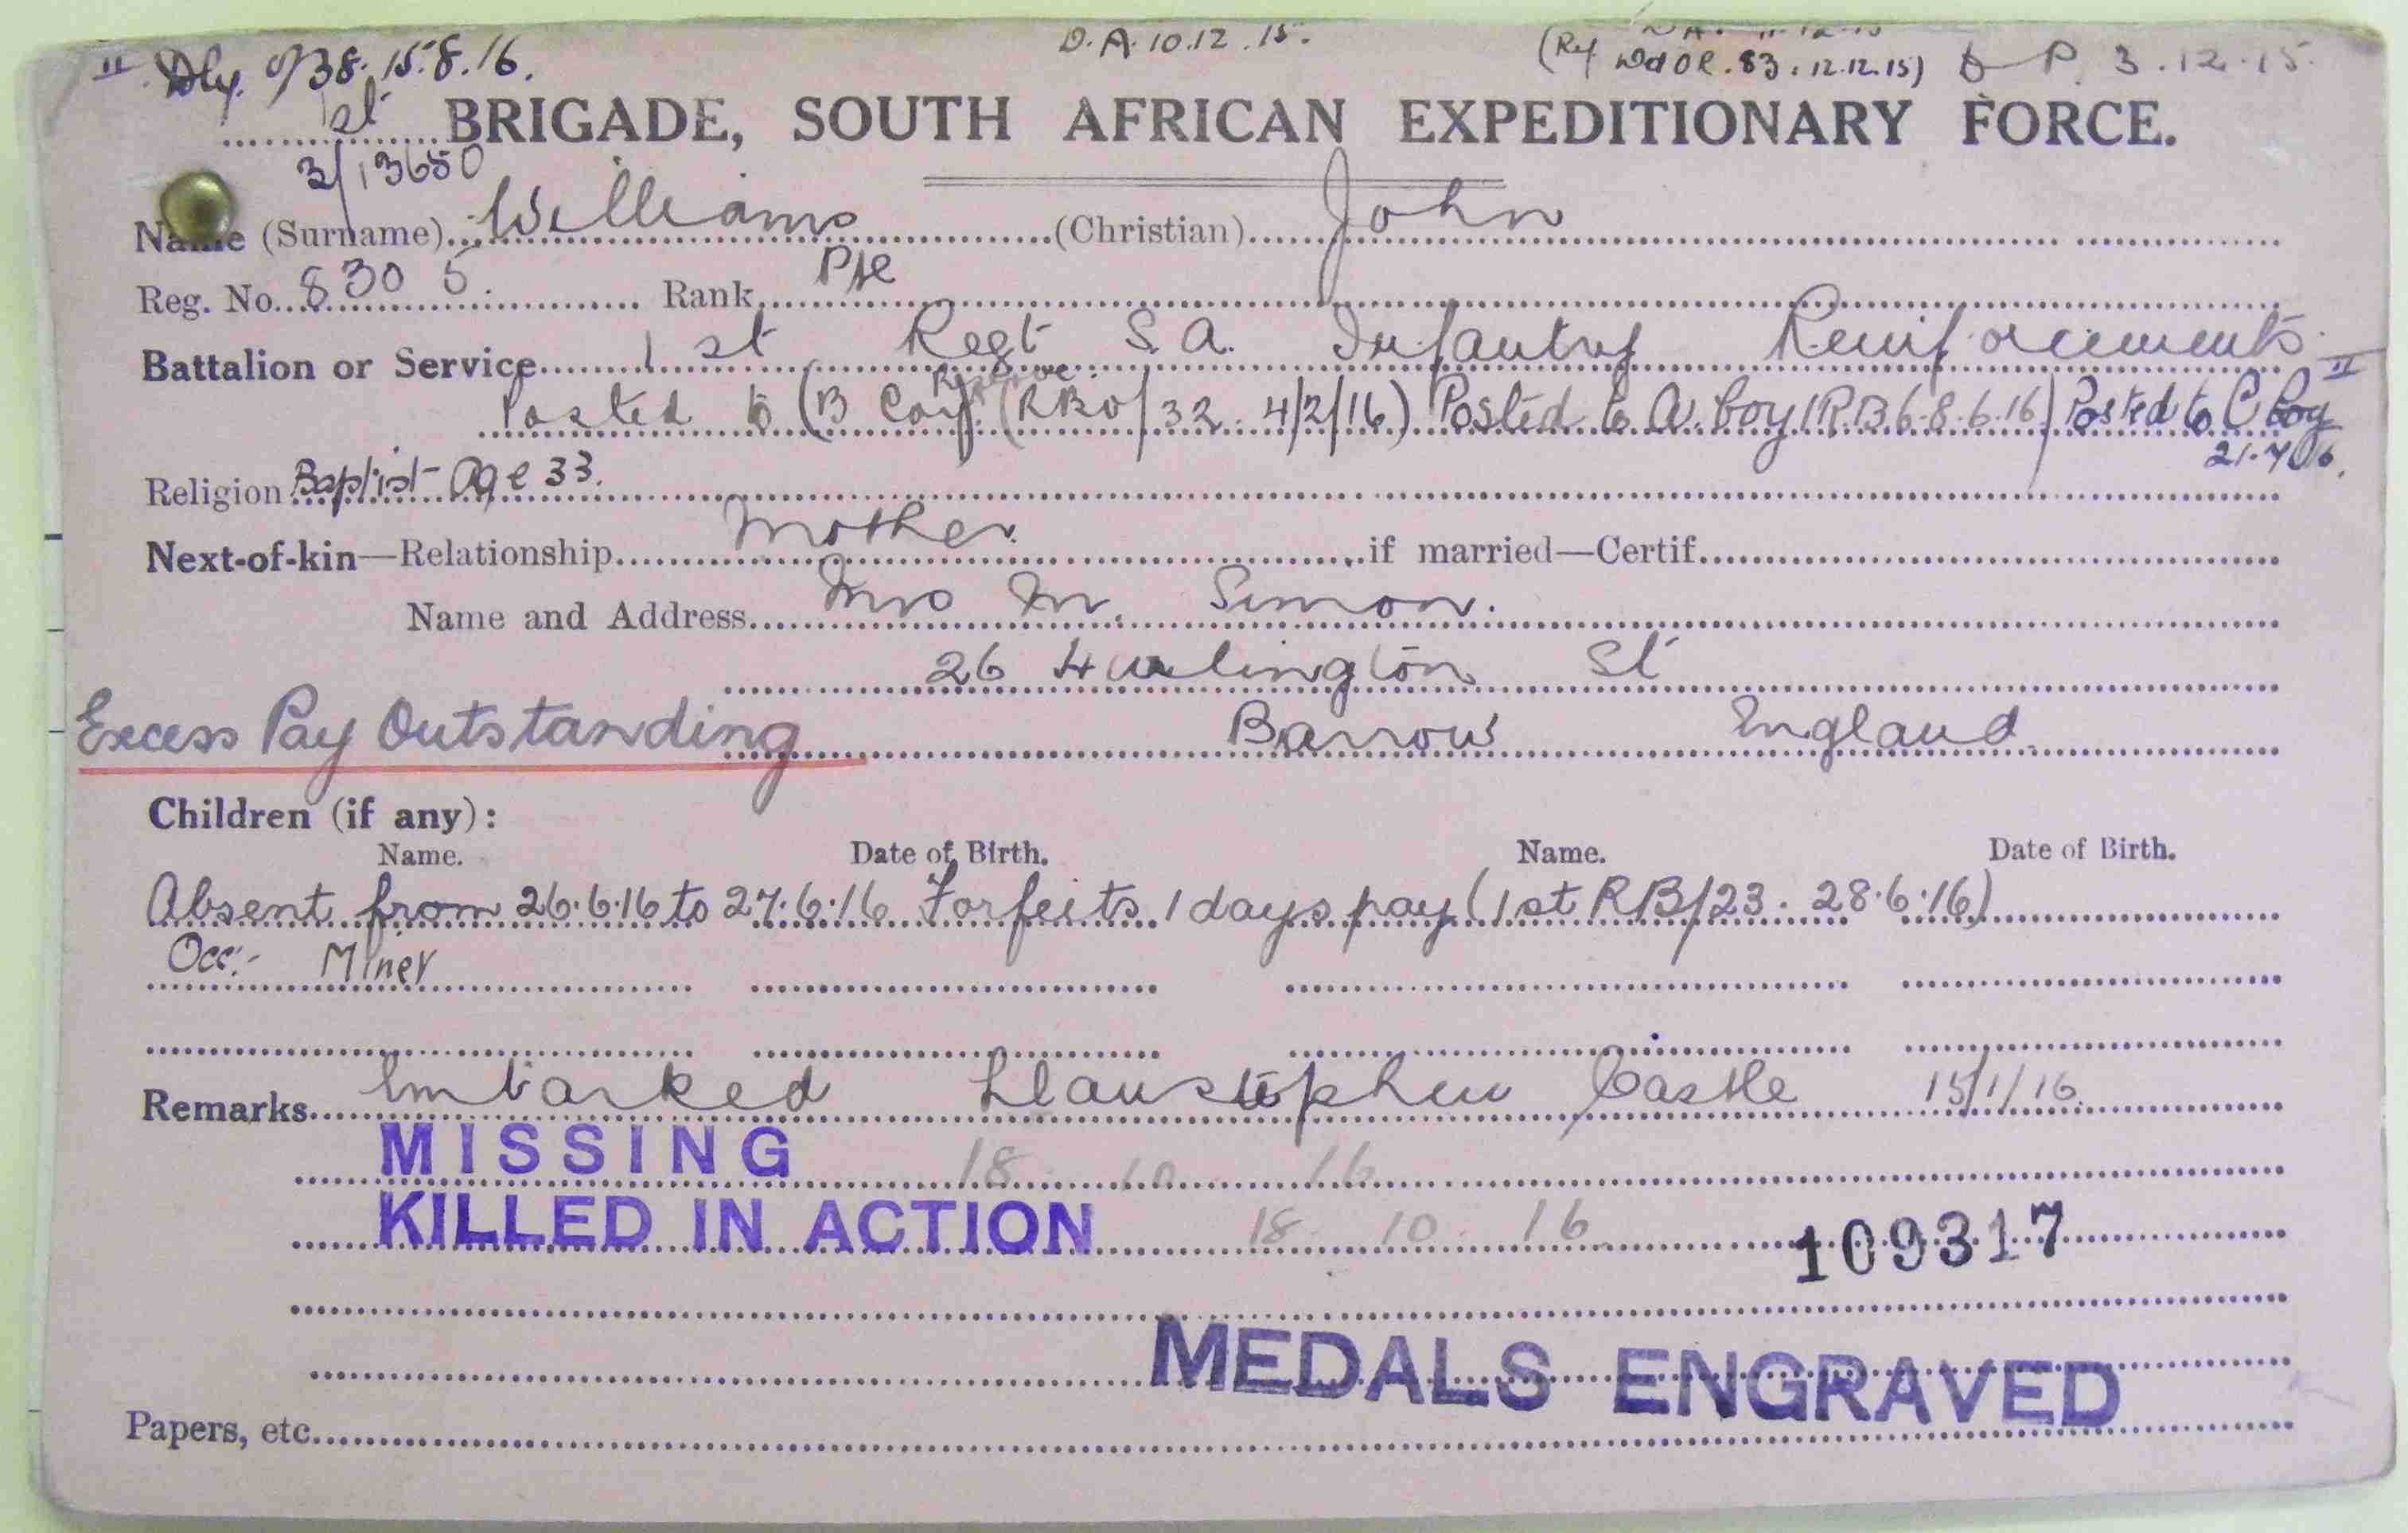 II Dly. o/38. 15.8.16. D.A. 10.12.15. D.A. 11.12.15
(Ref WdOR. 83. 12.12.15) P. 3.12.15.
1st BRIGADE, SOUTH AFRICAN EXPEDITIONARY FORCE.
3/13650
Name (Surname) Williams (Christian) John
Reg. No. 8305. Rank Pte
Battalion or Service 1st Regt S.A. Infantry Reinforcements
Reserve
Posted to (B Coy. (RBO/32 4/2/16) Posted to A. Coy (RB 6-8.6.16) II Posted to C Coy
21.7.16.
Religion Baptist Age 33.
Next-of-kin—Relationship Mother. if married—Certif.
Name and Address Mrs M. Simon.
26 St
Excess Pay Outstanding Barrow England.
Children (if any):
Name. Date of Birth. Name. Date of Birth.
Absent from 26.6.16 to 27.6.16 Forfeits 1 days pay (1st RB/23. 28.6.16)
Occ:- Miner
Remarks Embarked Llanstephen Castle 15/1/16.
MISSING 18 10 16
KILLED IN ACTION 18. 10. 16. 109317
MEDALS ENGRAVED
Papers, etc.